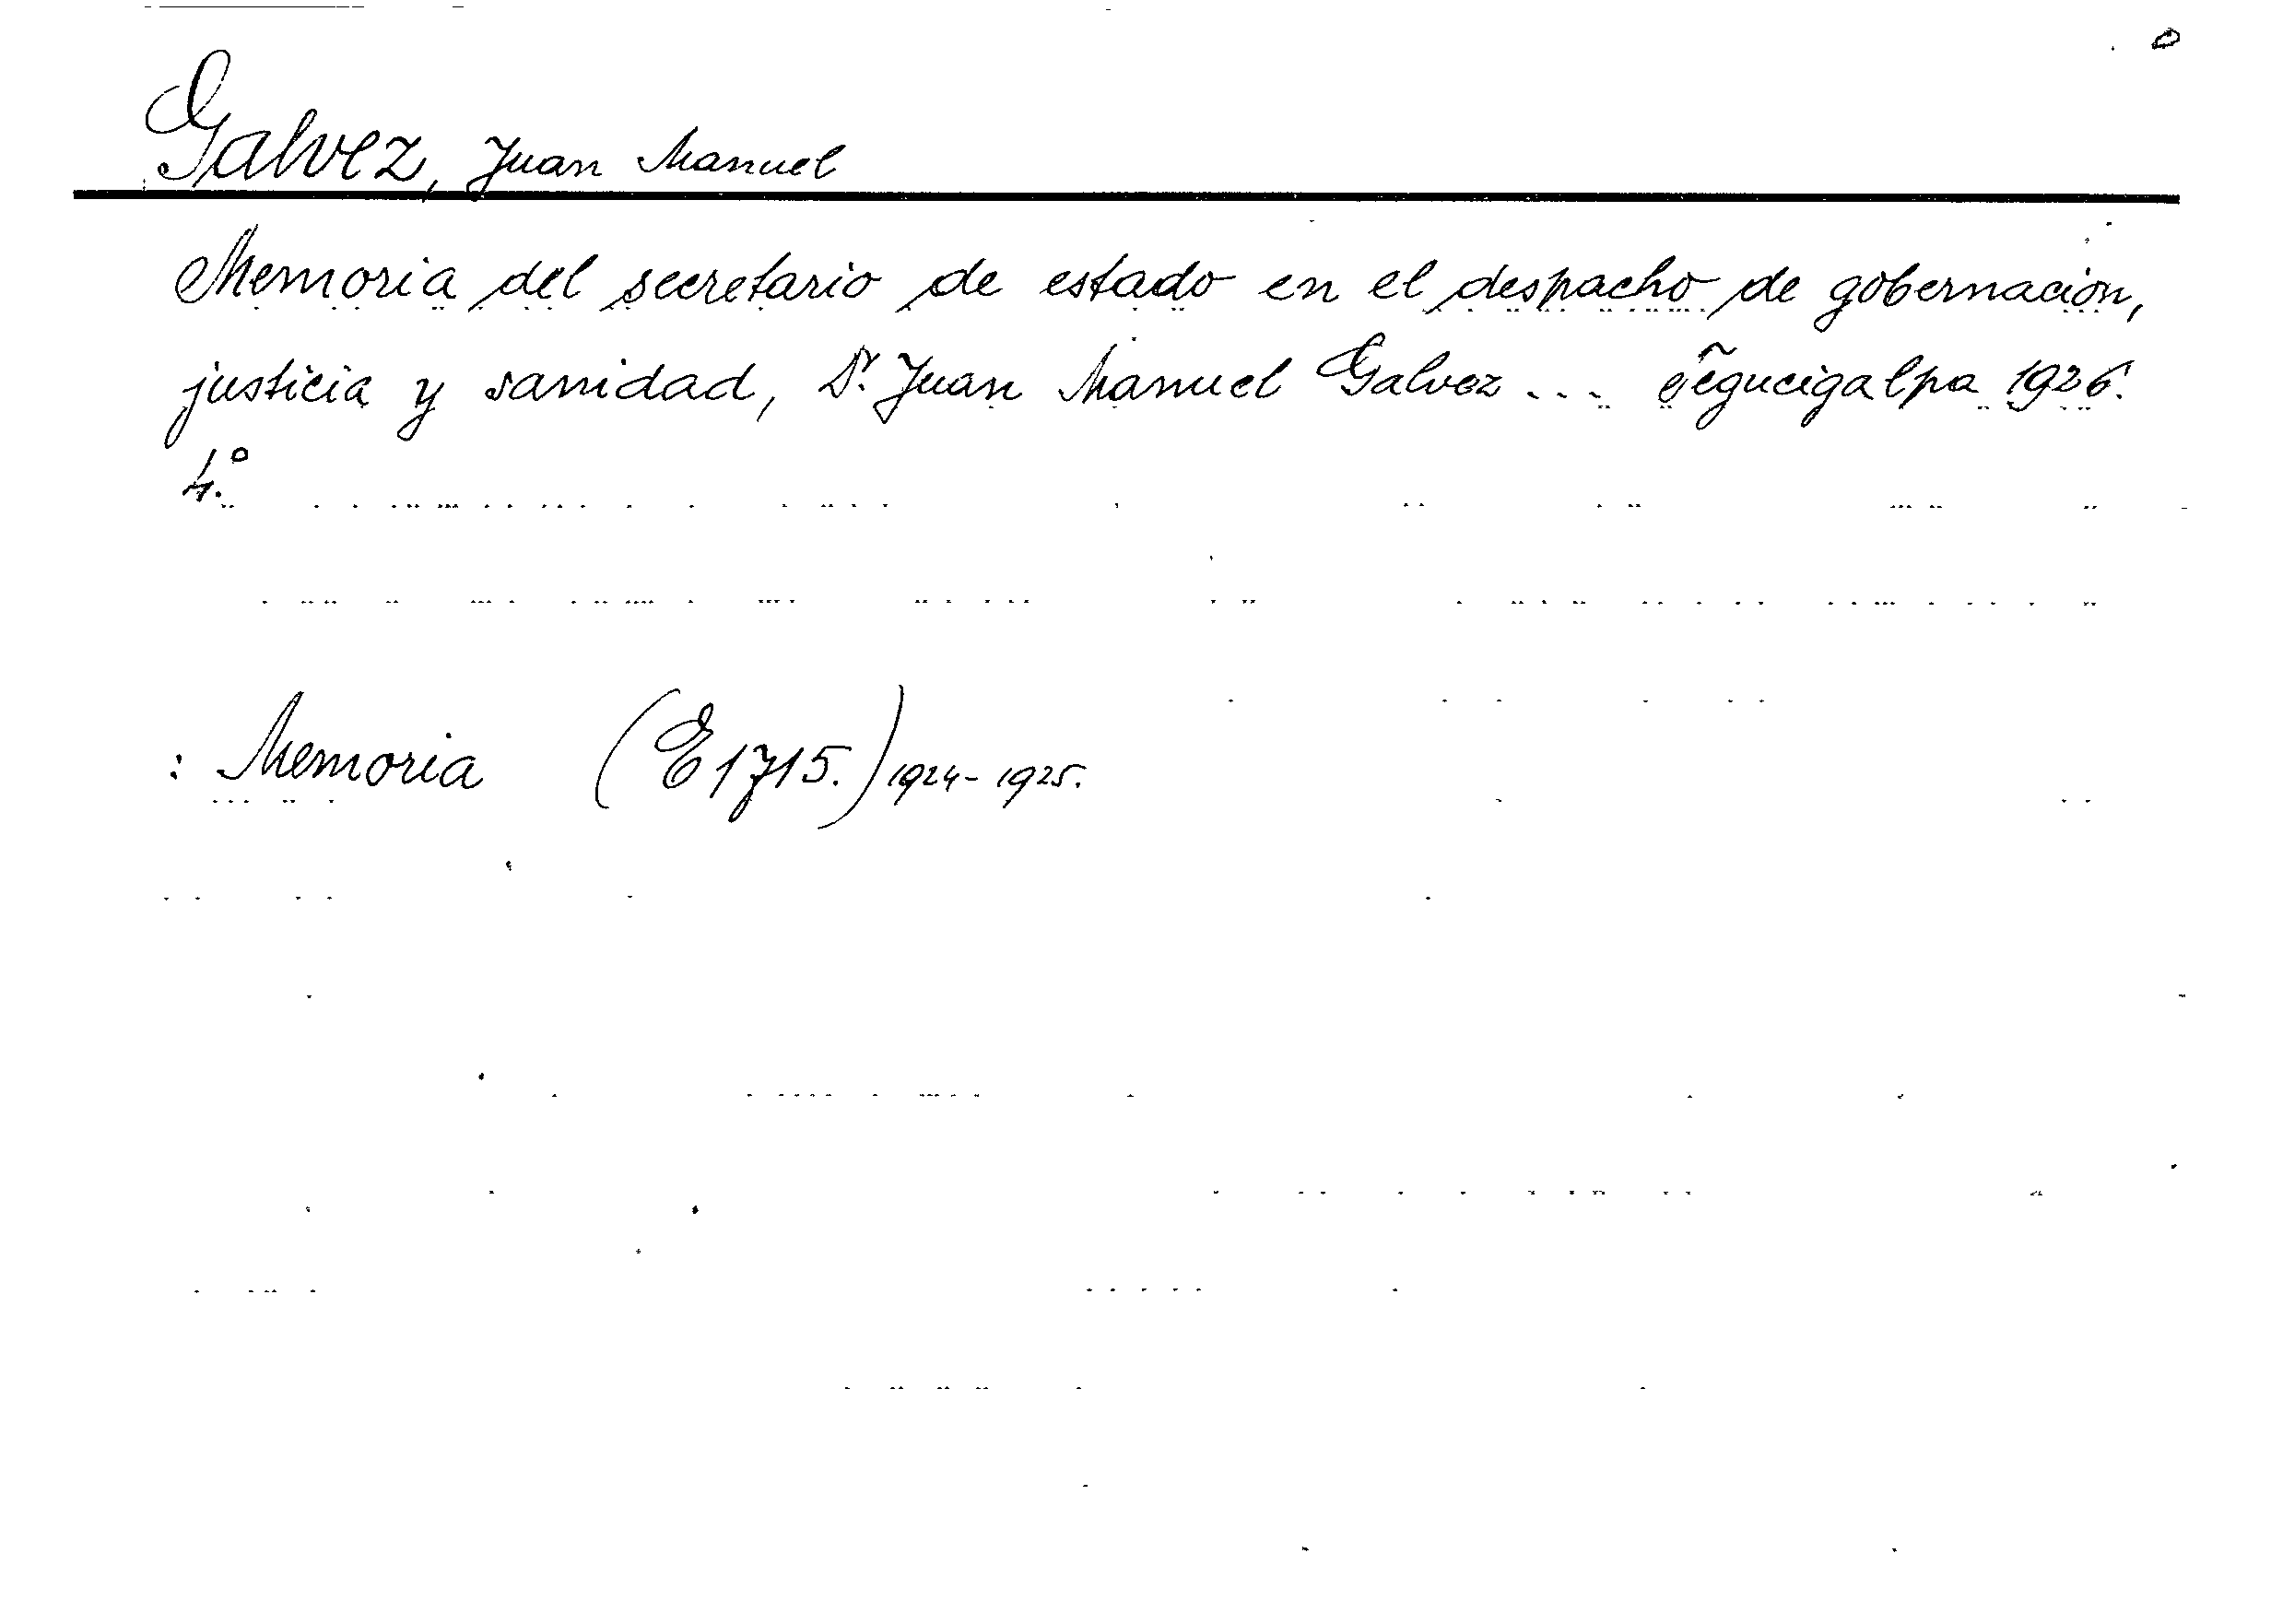 Galvez, Juan Manuel
Memoria del secretario de estado en el despacho de gobernación,
justicia y sanidad, Dr. Juan Manuel Galvez ... Tegucigalpa 1926.
4.°
: Memoria (E 1715.) 1924-1925.